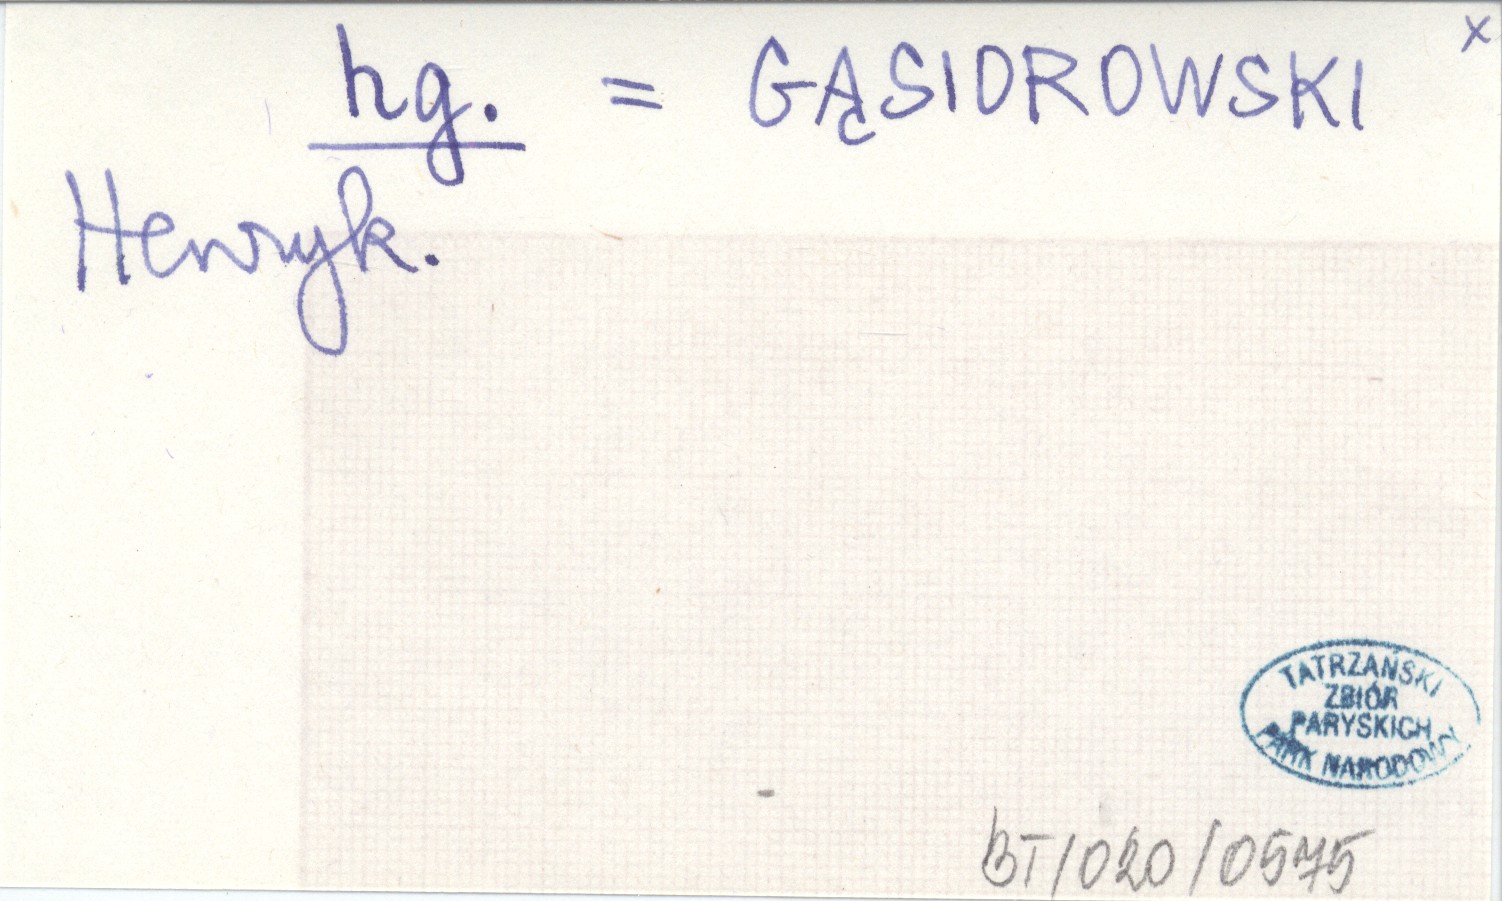 x
hg. = GĄSIOROWSKI
Henryk.
TATRZAŃSKI
ZBIÓR
PARYSKICH
PARK NARODOWY
BT/020/0575